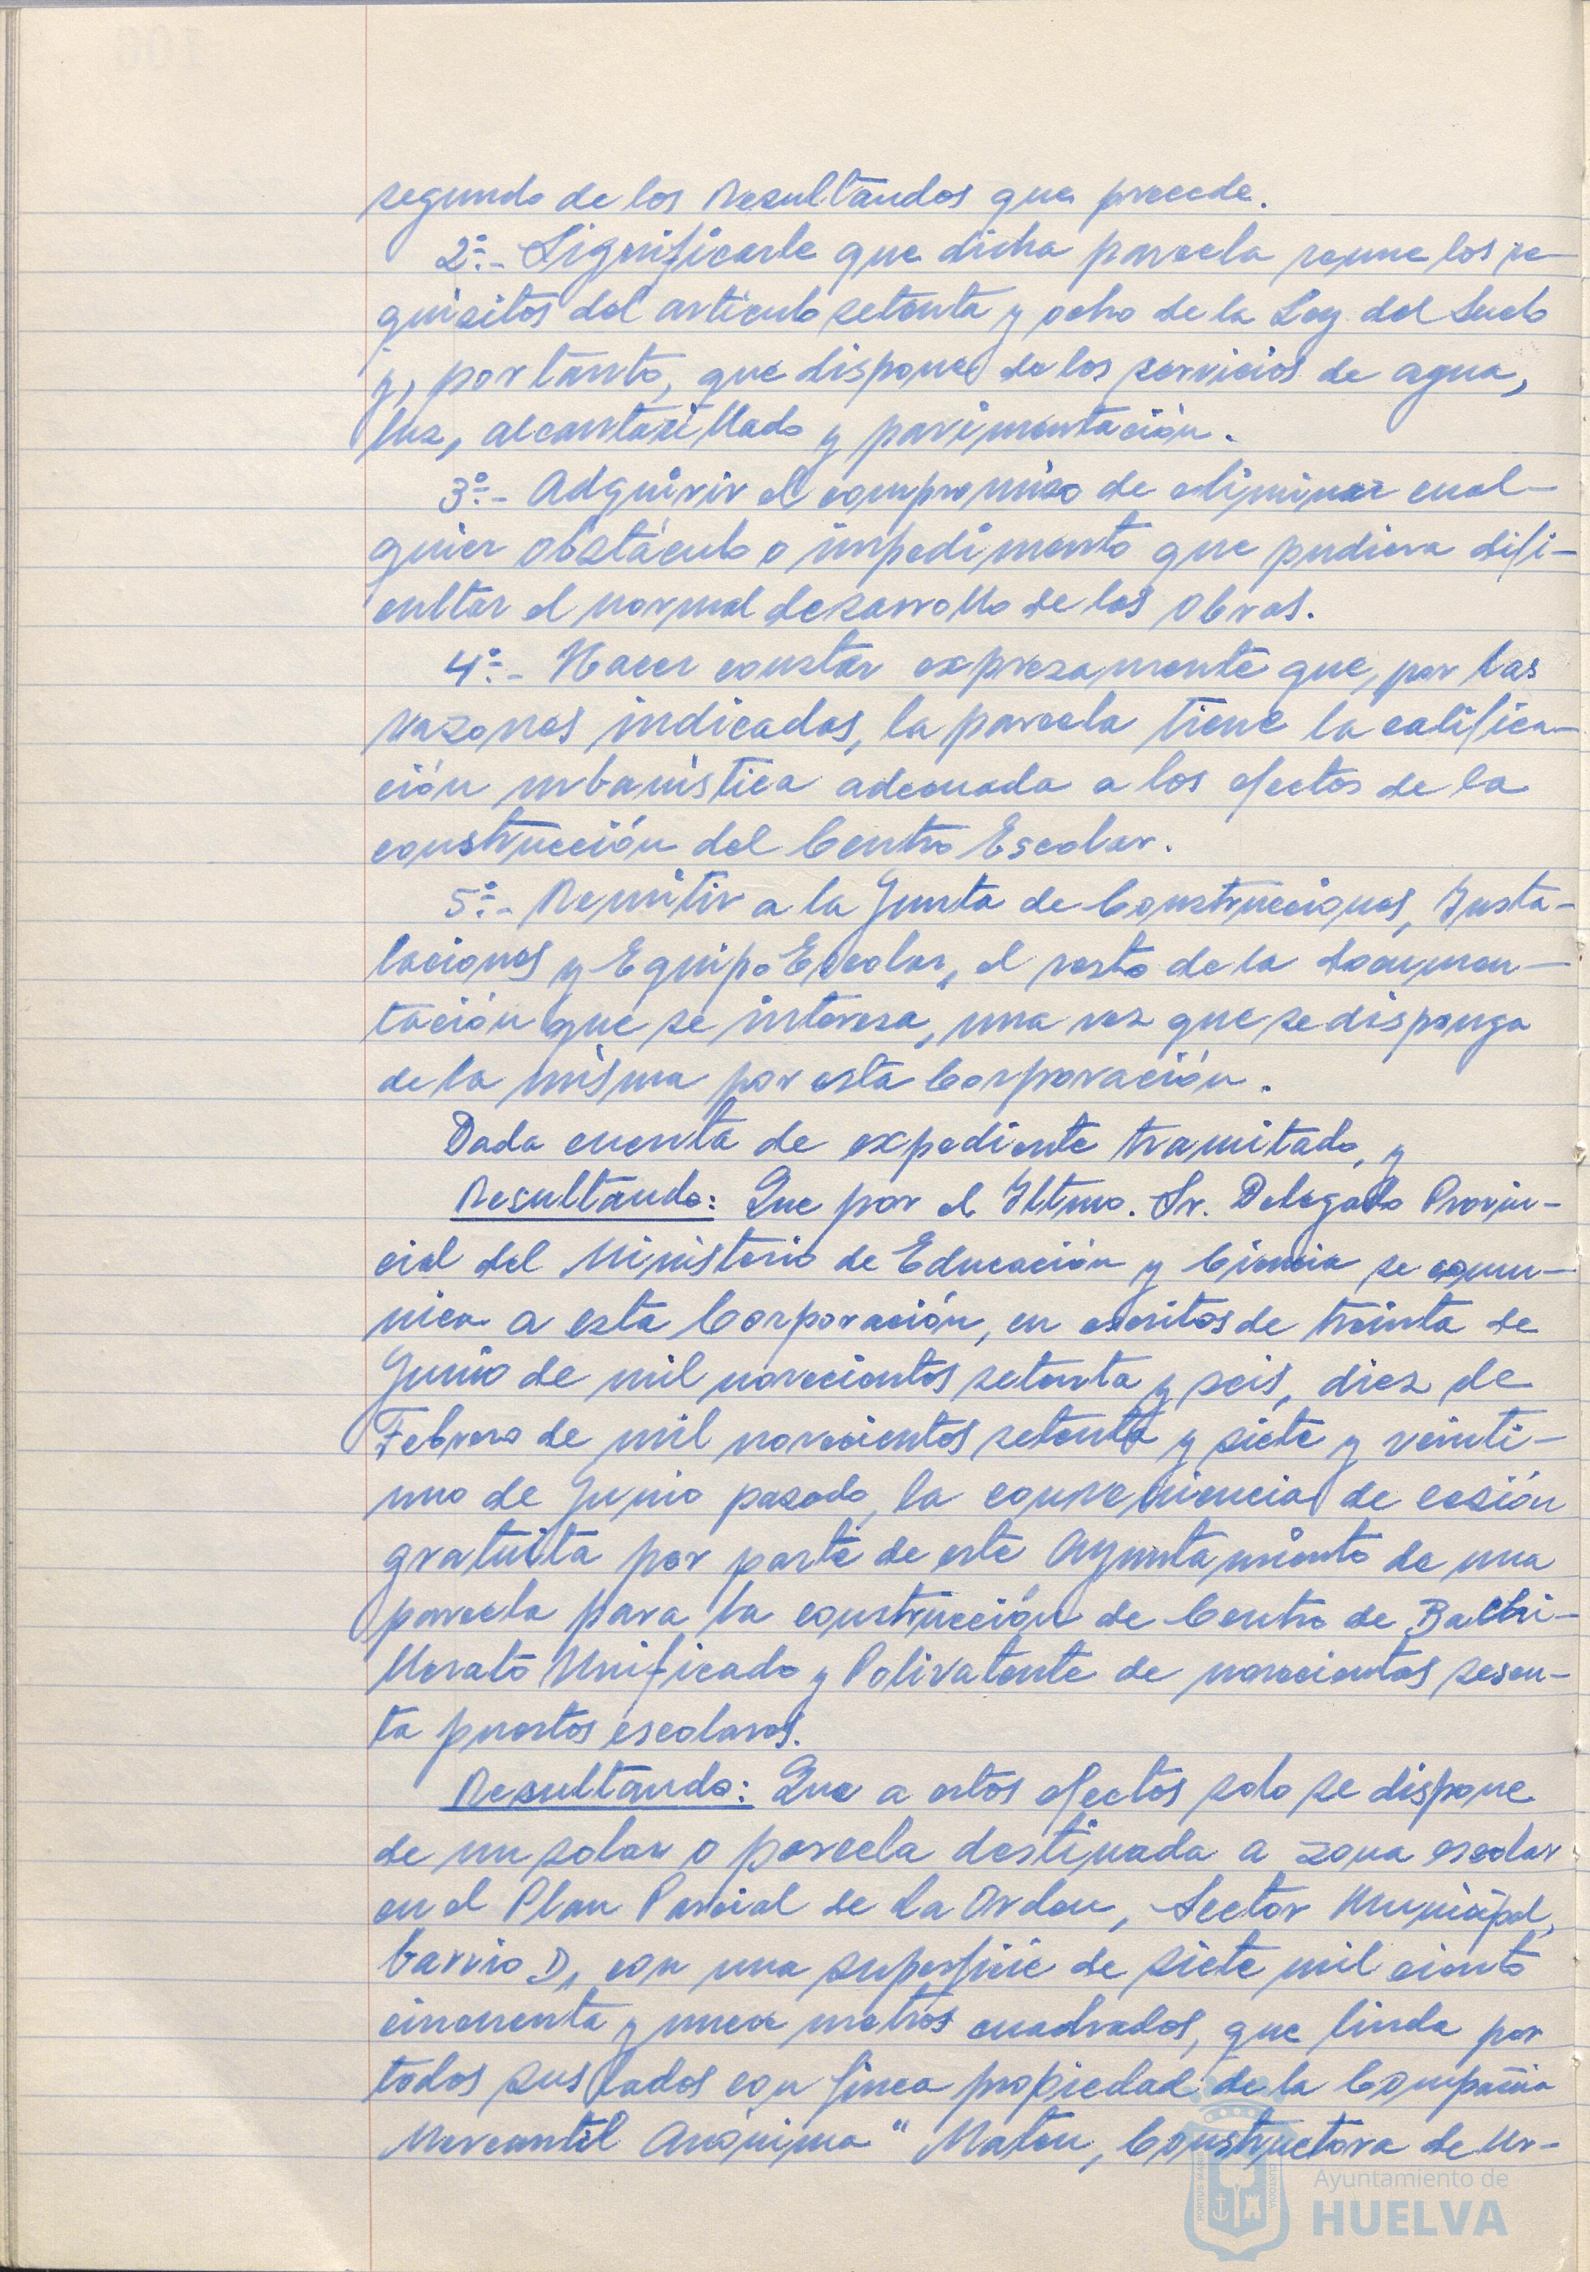 segundo de los Resultandos que precede.
2º.- Significarle que dicha parcela reune los re-
quisitos del artículo setenta y ocho de la Ley del Suelo
y, por tanto, que dispone de los servicios de agua,
luz, alcantarillado y pavimentación.
3º.- Adquirir el compromiso de eliminar cual-
quier obstáculo o impedimento que pudiera difi-
cultar el normal desarrollo de las obras.
4º.- Hacer constar expresamente que, por las
razones indicadas, la parcela tiene la califica-
ción urbanística adecuada a los efectos de la
construcción del Centro Escolar.
5º.- Remitir a la Junta de Construcciones, Insta-
laciones y Equipo Escolar, el resto de la documen-
tación que se interesa, una vez que se disponga
de la misma por esta Corporación.
Dada cuenta de expediente tramitado, y
Resultando: Que por el Iltmo. Sr. Delegado Provin-
cial del Ministerio de Educación y Ciencia se comu-
nica a esta Corporación, en escritos de treinta de
Junio de mil novecientos setenta y seis, diez de
Febrero de mil novecientos setenta y siete y veinti-
uno de Junio pasado, la conveniencia de cesión
gratuita por parte de este Ayuntamiento de una
parcela para la construcción de Centro de Bachi-
llerato Unificado y Polivalente de novecientos sesen-
ta puestos escolares.
Resultando: Que a estos efectos solo se dispone
de un solar o parcela destinada a zona escolar
en el Plan Parcial de La Orden, Sector Municipal,
barrio D, con una superficie de siete mil ciento
cincuenta y nueve metros cuadrados, que linda por
todos sus lados con finca propiedad de la Compañía
Mercantil Anónima "Mateu, Constructora de Ur-
Ayuntamiento de
HUELVA